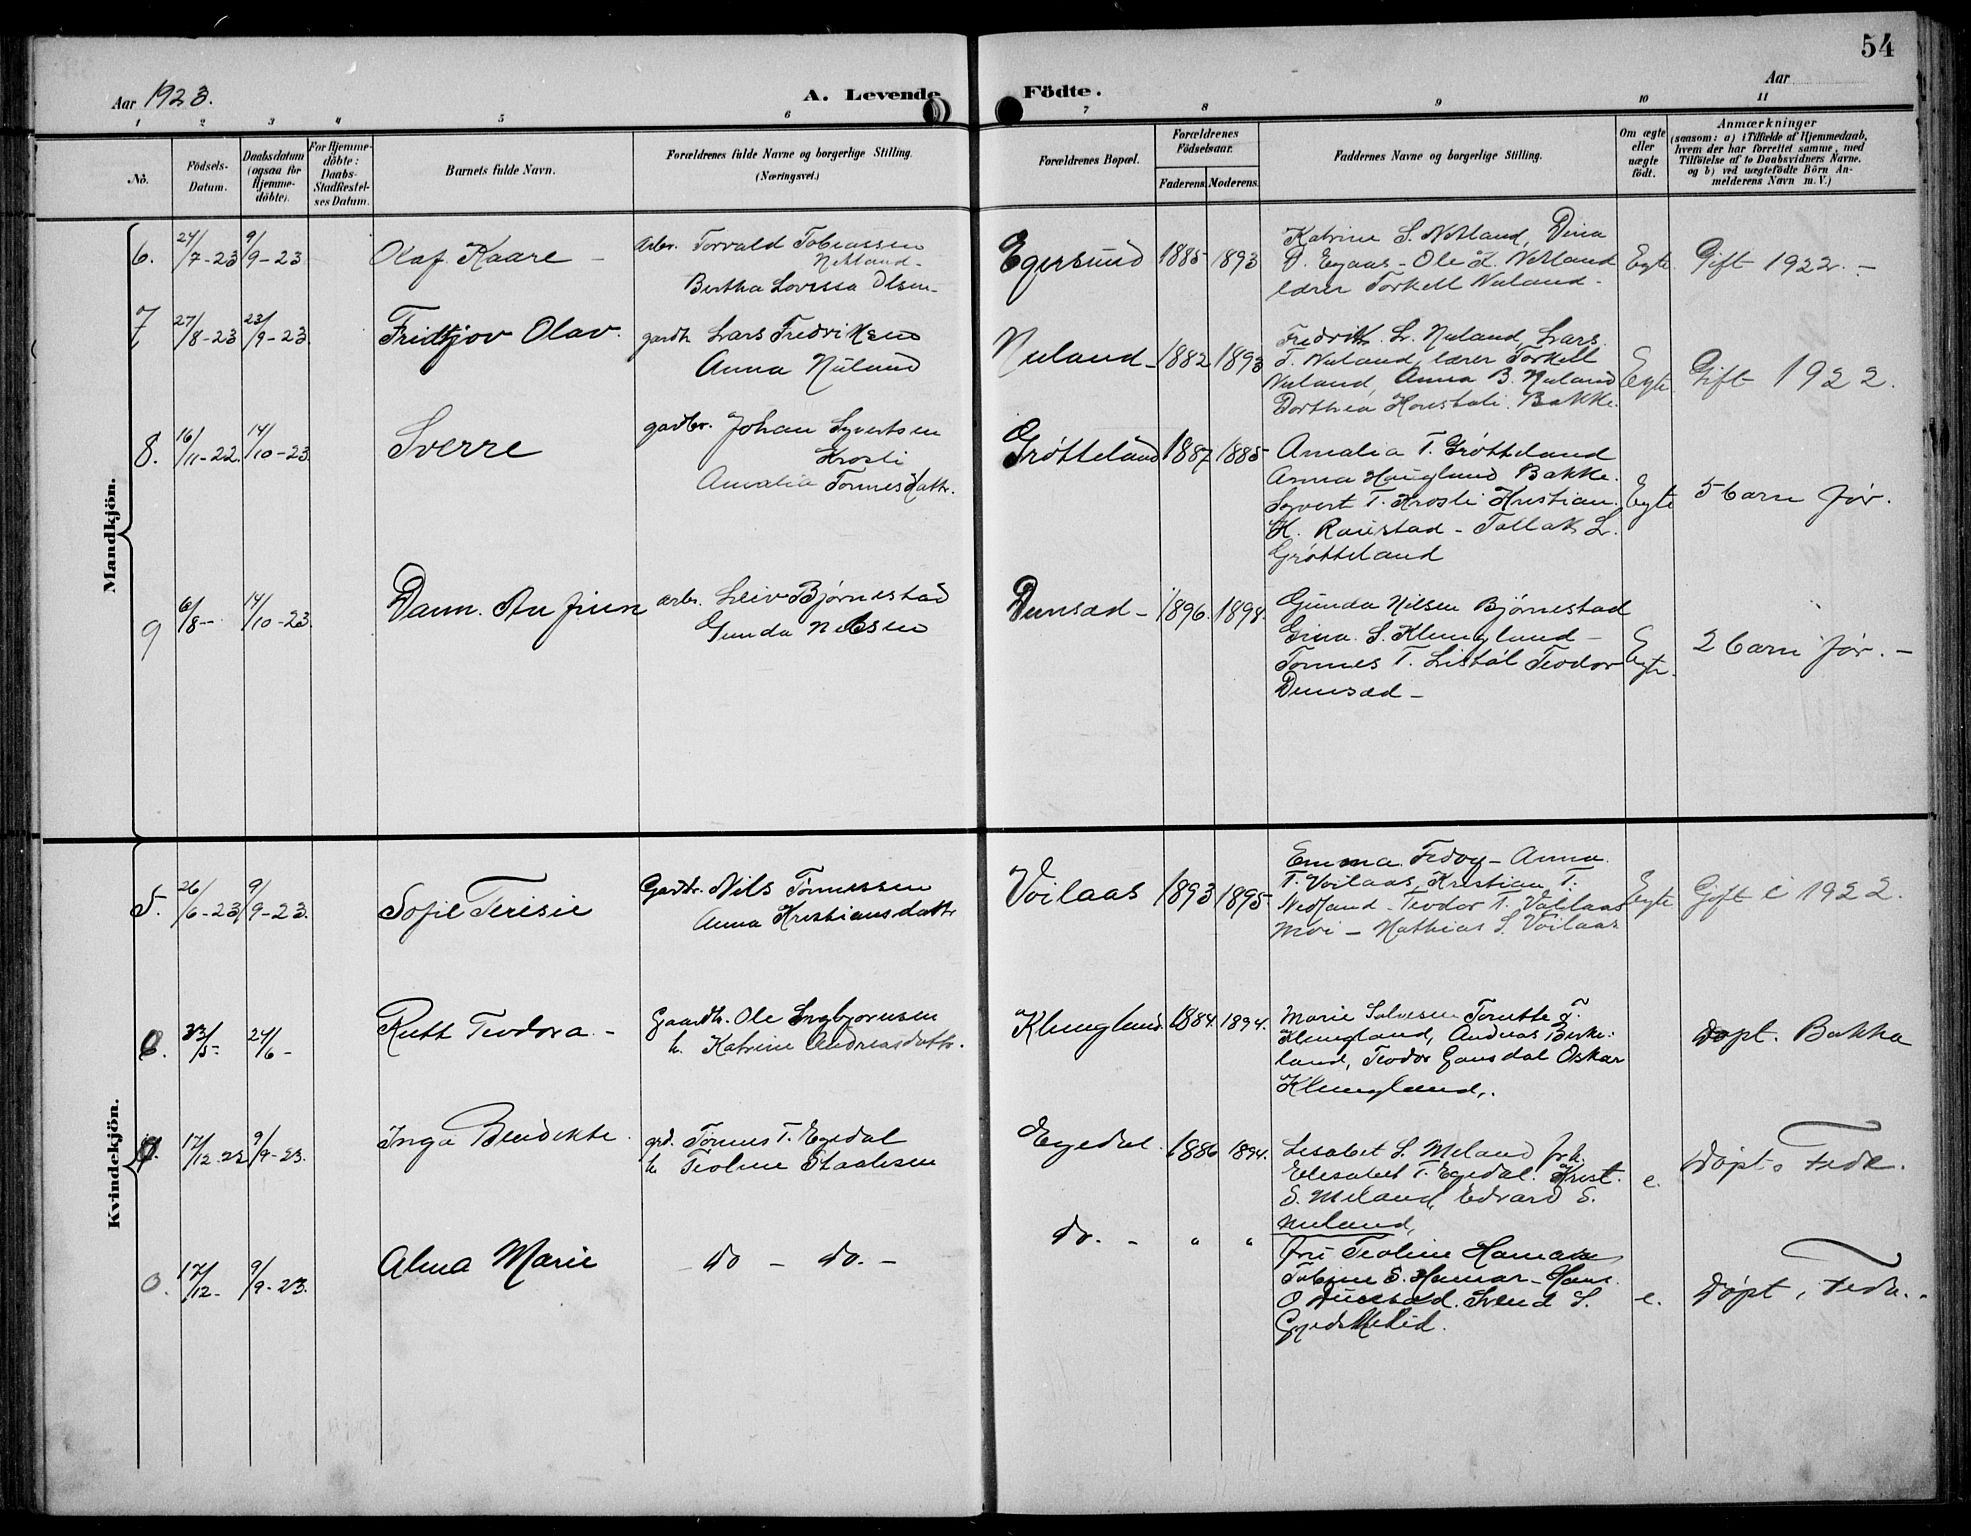 54
Aar 1923.
A. Levende Födte.
Aar
1 2 3 4 5 6 7 8 9 10 11
No.
Födsels-
Datum.
Daabsdatum
(ogsaa for
Hjemme-
döbte).
For Hjemme-
döbte:
Daabs-
Stadfæstel-
ses Datum.
Barnets fulde Navn.
Forældrenes fulde Navne og borgerlige Stilling.
(Næringsvei.)
Forældrenes Bopæl.
Forældrenes
Födselsaar.
Faderens. Moderens.
Faddernes Navne og borgerlige Stilling.
Om ægte
eller
uægte
födt.
Anmærkninger
(saasom: a) i Tilfælde af Hjemmedaab,
hvem der har forrettet samme, med
Tilföielse af to Daabsvidners Navne,
og b) ved uægtefödte Börn An-
melderens Navn m. V.)
Mandkjön.
6. 24/7-23 9/9-23 Olaf Kaare - arbr. Torvald Tobiassen
Netland -
Bertha Lovissa Olsen -
Egersund 1885 1893
Katrine S. Netland, Dina
O. Egaas - Ole K. Netland
lærer Torkell Nuland -
Egte Gift 1922. -
7 27/8-23 23/9-23 Fridtjov Olav. gardbr. Lars Fredriksen
Anna Nuland
Nuland - 1882 1893
Fredrik L. Nuland, Lars
T. Nuland, lærer Torkell
Nuland, Anna B. Nuland
Dorthea Bakke.
Egte Gift 1922.
8. 16/11-22. 14/10-23. Sverre gardbr. Johan Syvertsen
Krosli
Amalia Tønnesdattr.
Grøtteland 1887 1885
Amalia T. Grøtteland
Anna Haugland Bakke.
Syvert T. Krosli Kristian
K. Raustad - Tallak L.
Grøtteland
Egte 5 barn før.
9 6/8- 14/10-23. Dann. An finn arbr. Leiv Bjørnestad
Gunda Nilsen
Dunsæd - 1896. 1898.
Gunda Nilsen Bjørnestad
Gina S. Klungland -
Tønnes T. Listøl Teodor
Dunsæd -
Egte. 2 barn før. -
Kvindekjön.
5. 26/6-23 9/9-23. Sofie Terisie Gardbr. Nils Tønnessen
Anna Kristiansdattr
Voilaas 1893 1895
Emma Fedog - Anna
T. Voilaas, Kristian T.
Netland - Teodor T. Voilaas
Moi - Mathias S. Voilaas
Egte Gift i 1922.
6. 24/6 - Ruth Teodora - Gaardbr. Ole Ingbjørnsen
h. Katrine Andreasdattr.
Klungland 1884. 1894.
Marie Salvesen Tonette T.
Klungland, Andreas Birke-
land, Teodor Gausdal Oskar
Klungland,.
Døpt. Bakka
7. 17/12-22 9/9-23. Inga Bendikte. grd. Tønnes T. Egedal
h Teoline Staalesen
Egedal. 1886 1894.
Lisabet S. Meland frk.
Elesabet T. Egedal. Krist.
S. Meland, Edvard S.
Nuland,
e. Døpt i Feda.
17/12- 9/9-23. Alma Marie do - do. - do. - " "
fru Teoline Hamar
Tobine S. Hamar - Hans
O Svend S.
Gjedsmelid.
e. Døpt i Feda.